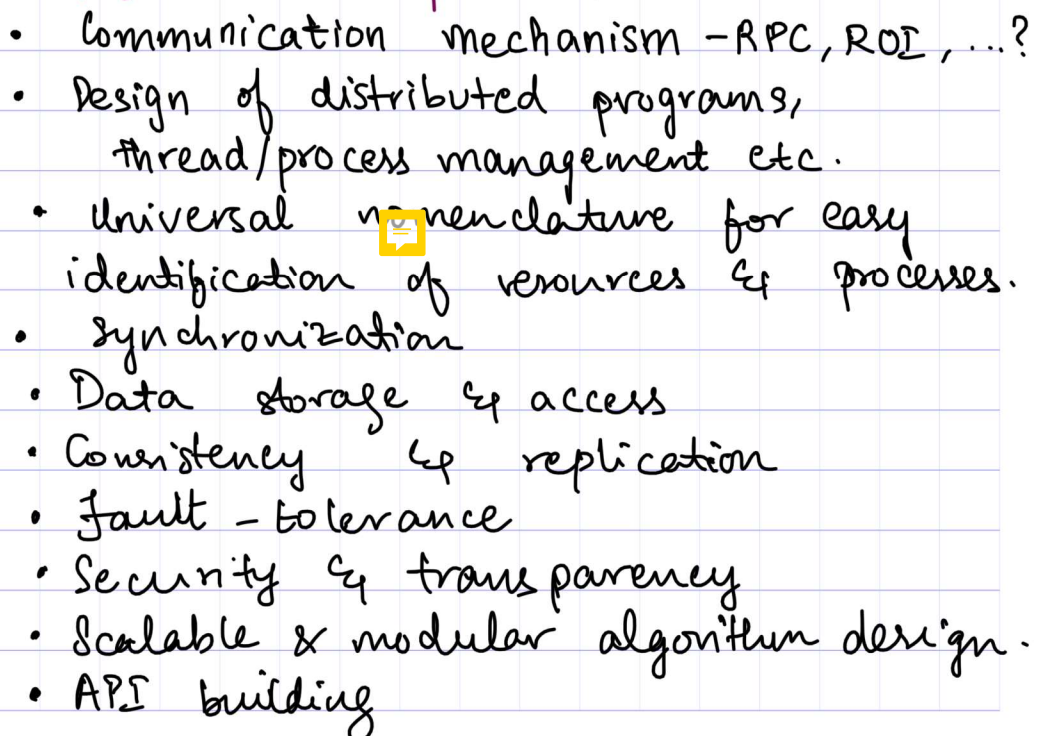 • Communication mechanism - RPC, ROI, ...?
• Design of distributed programs,
thread/process management etc.
• Universal nomenclature for easy
identification of resources & processes.
• Synchronization
• Data storage & access
• Consistency & replication
• Fault - tolerance
• Security & transparency
• Scalable & modular algorithm design.
• API building